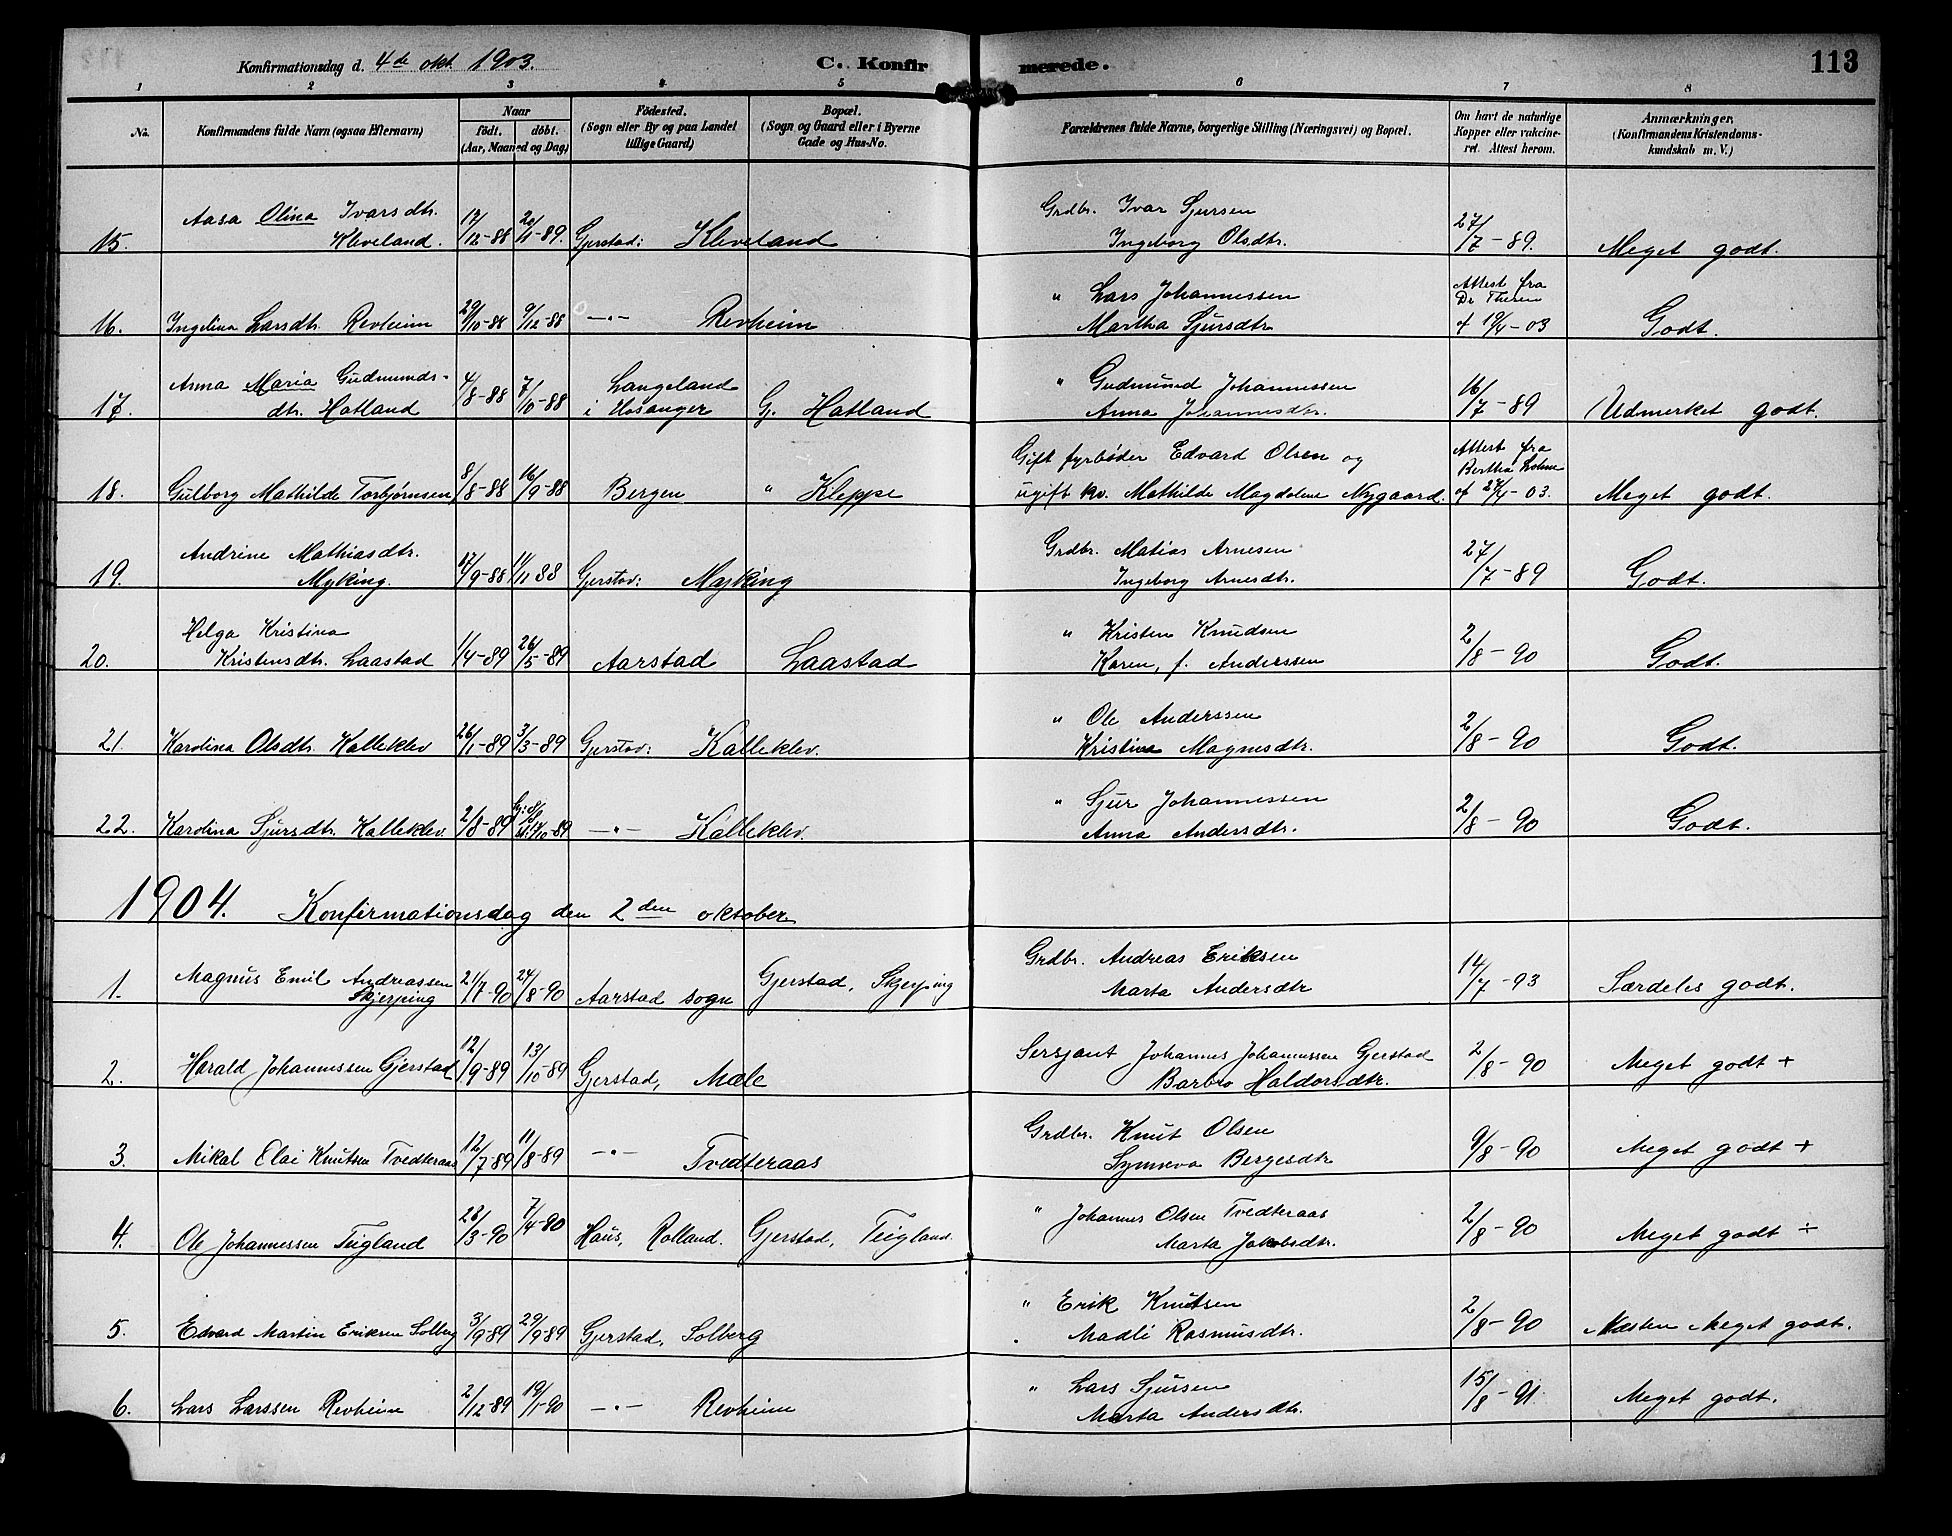 Konfirmationsdag d. 4de okt 1903. C. Konfirmerede. 113
1 2 3 4 5 6 7 8
No. Konfirmandens fulde Navn (ogsaa Efternavn) Naar født. døbt. (Aar, Maaned og Dag) Födested. (Sogn eller By og paa Landet tillige Gaard) Bopæl. (Sogn og Gaard eller i Byerne Gade og Hus-No. Forældrenes fulde Navne, borgerlige Stilling (Næringsvei) og Bopæl. Om havt de naturlige Kopper eller vakcineret. Attest herom. Anmærkninger, (Konfirmandens Kristendomskundskab m. V.)
Aasa Olina Ivarsdtr. Grdbr. Ivar Sjursen
15. Kleveland. 17/12-88 20/1-89. Gjerstad: Kleveland Ingeborg Olsdtr. 27/7-89. Meget godt.
" Lars Johannessen Attest fra
16. Ingelina Larsdtr. Revheim 29/10-88 9/12-88 -"- Revheim Martha Sjursdtr -03 Godt.
Anna Maria Gudmunds- Langeland " Gudmund Johannessen
17. dtr. Hatland 4/8-88 7/10-88 i Hosanger G. Hatland Anna Johannesdtr. 16/7-89 Udmerket godt.
Gift fyrbøder Edvard Olsen og Attest fra
18. Gulborg Mathilde Torbjørnsen 8/8-88 16/9-88 Bergen " Kleppe ugift kv. Mathilde Magdalene Nygaard. -03. Meget godt.
Andrine Mathiasdtr. Grdbr. Matias Arnesen
19. Myking. 17/9-88 11/11 88 Gjerstad: Myking Ingeborg Arnesdtr. 27/7-89 Godt.
Helga Kristina " Kristen Knudsen
20. Kristensdtr. Laastad 1/4-89 26/5-89 Aarstad Laastad Karen, f. Anderssen 2/8-90 Godt.
" Ole Anderssen
21. Karolina Olsdtr. Kalleklev 26/1-89 3/3-89 Gjerstad: Kalleklev. Kristina Magnesdtr. 2/8-90 Godt.
" Sjur Johannessen
22. Karolina Sjursdtr. Kalleklev. 2/8-89 -89 -"- Kalleklev. Anna Andersdtr. 2/8-90 Godt.
1904. Konfirmationsdag den 2den oktober.
Magnus Emil Andreassen Grdbr. Andreas Eriksen
1. Skjerping 21/7-90 24/8-90 Aarstad sogn Gjerstad, Skjerping Marta Andersdtr 14/7-93 Særdeles godt.
Sersjant Johannes Johannessen Gjerstad
2. Harald Johannessen Gjerstad 12/9-89 13/10-89 Gjerstad, Mæle Barbro Haldorsdtr. 2/8-90 Meget godt +
Grdbr. Knut Olsen
3. Mikal Olai Knutsen Tvedteraas 12/7-89 11/8-89 -"- Tvedteraas Synneva Bergesdtr 9/8-90 Meget godt +
" Johannes Olsen Tvedteraas
4. Ole Johannessen Teigland 28/3-90 7/4-80 Haus, Rolland. Gjerstad, Teigland. Marta Jakobsdtr. 2/8-90 Meget godt ÷
" Erik Knutsen
5. Edvard Martin Eriksen Solberg 3/9-89 29/9-89 Gjerstad, Solberg Madli Rasmusdtr. 2/8-90 Næsten Meget godt.
" Lars Sjursen
6. Lars Larssen Revheim 2/12-89 19/1-90 -"- Revheim Marta Andersdtr. 15/8-91. Meget godt.